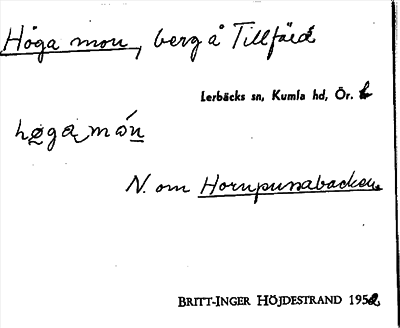 Höga mon, berg å Tillfärd
Lerbäcks sn, Kumla hd, Ör. l
høga món
N. om Hornpussabacken.
BRITT-INGER HÖJDESTRAND 1952